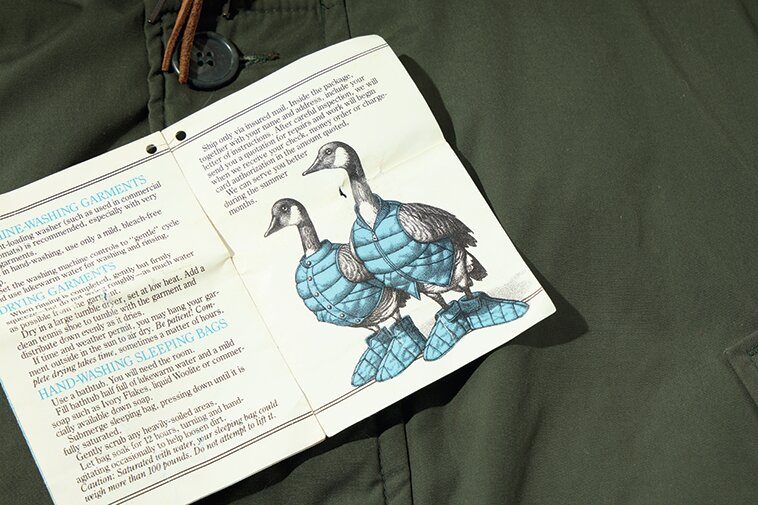 INE-WASHING GARMENTS
nt-loading washer (such as used in commercial
omats) is recommended, especially with very
garments.
r in hand-washing, use only a mild, bleach-free
Set the washing machine controls to "gentle" cycle
nd use lukewarm water for washing and rinsing.
DRYING GARMENTS
When rinsing is completed, gently but firmly
as much water
as possible from the garment
Dry in a large tumble dryer, set at low heat. Add a
clean tennis shoe to tumble with the garment and
distribute down evenly as it dries.
If time and weather permit, you may hang your gar-
ment outside in the sun to air dry. Be patient! Com-
plete drying takes time, sometimes a matter of hours.
HAND-WASHING SLEEPING BAGS
Use a bathtub. You will need the room.
Fill bathtub half full of lukewarm water and a mild
soap such as Ivory Flakes, liquid Woolite or commer-
cially available down soap.
Submerge sleeping bag, pressing down until it is
fully saturated.
Gently scrub any heavily-soiled areas.
Let bag soak for 12 hours, turning and hand-
agitating occasionally to help loosen dirt.
Caution: Saturated with water, your sleeping bag could
weigh more than 100 pounds. Do not attempt to lift it.
Ship only via insured mail. Inside the package,
together with your name and address, include your
letter of instructions. After careful inspection, we will
send you a quotation for repairs and work will begin
when we receive your check, money order or charge-
card authorization in the amount quoted.
We can serve you better
during the summer
months.